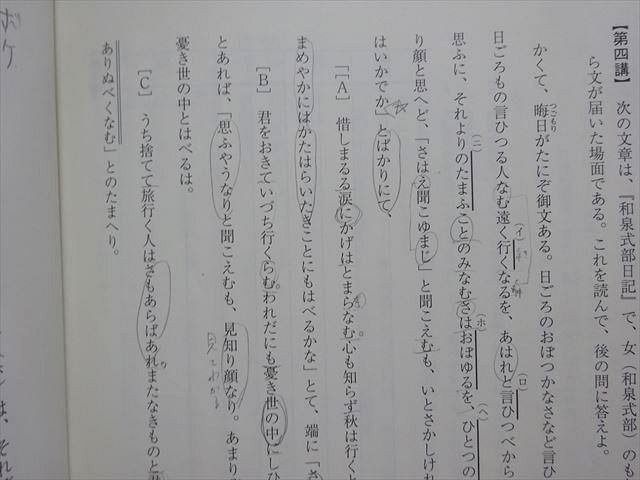 【第四講】 次の文章は、『和泉式部日記』で、女（和泉式部）のも
ら文が届いた場面である。これを読んで、後の問に答えよ。
かくて、晦日がたにぞ御文ある。日ごろのおぼつかなさなど言ひ
つごもり
日ごろもの言ひつる人なむ遠く行くなるを、あはれと言ひつべから
(イ)
(ロ)
思ふに、それよりのたまふことのみなむさはおぼゆるを、ひとつの
(ニ)
(ホ)
(ヘ)
り顔と思へど、「さはえ聞こゆまじ」と聞こえむも、いとさかしけれ
はいかでか」とばかりにて、
「［A］ 惜しまるる涙にかげはとまらなむ心も知らず秋は行くと
まめやかにはかたはらいたきことにもはべるかな」とて、端に「さ
［B］ 君をおきていづち行くらむわれだにも憂き世の中にしひ
とあれば、「思ふやうなりと聞こえむも、見知り顔なり。あまり
憂き世の中とはべるは。
［C］ うち捨てて旅行く人はさもあらばあれまたなきものと
ありぬべくなむ」とのたまへり。
ボケ